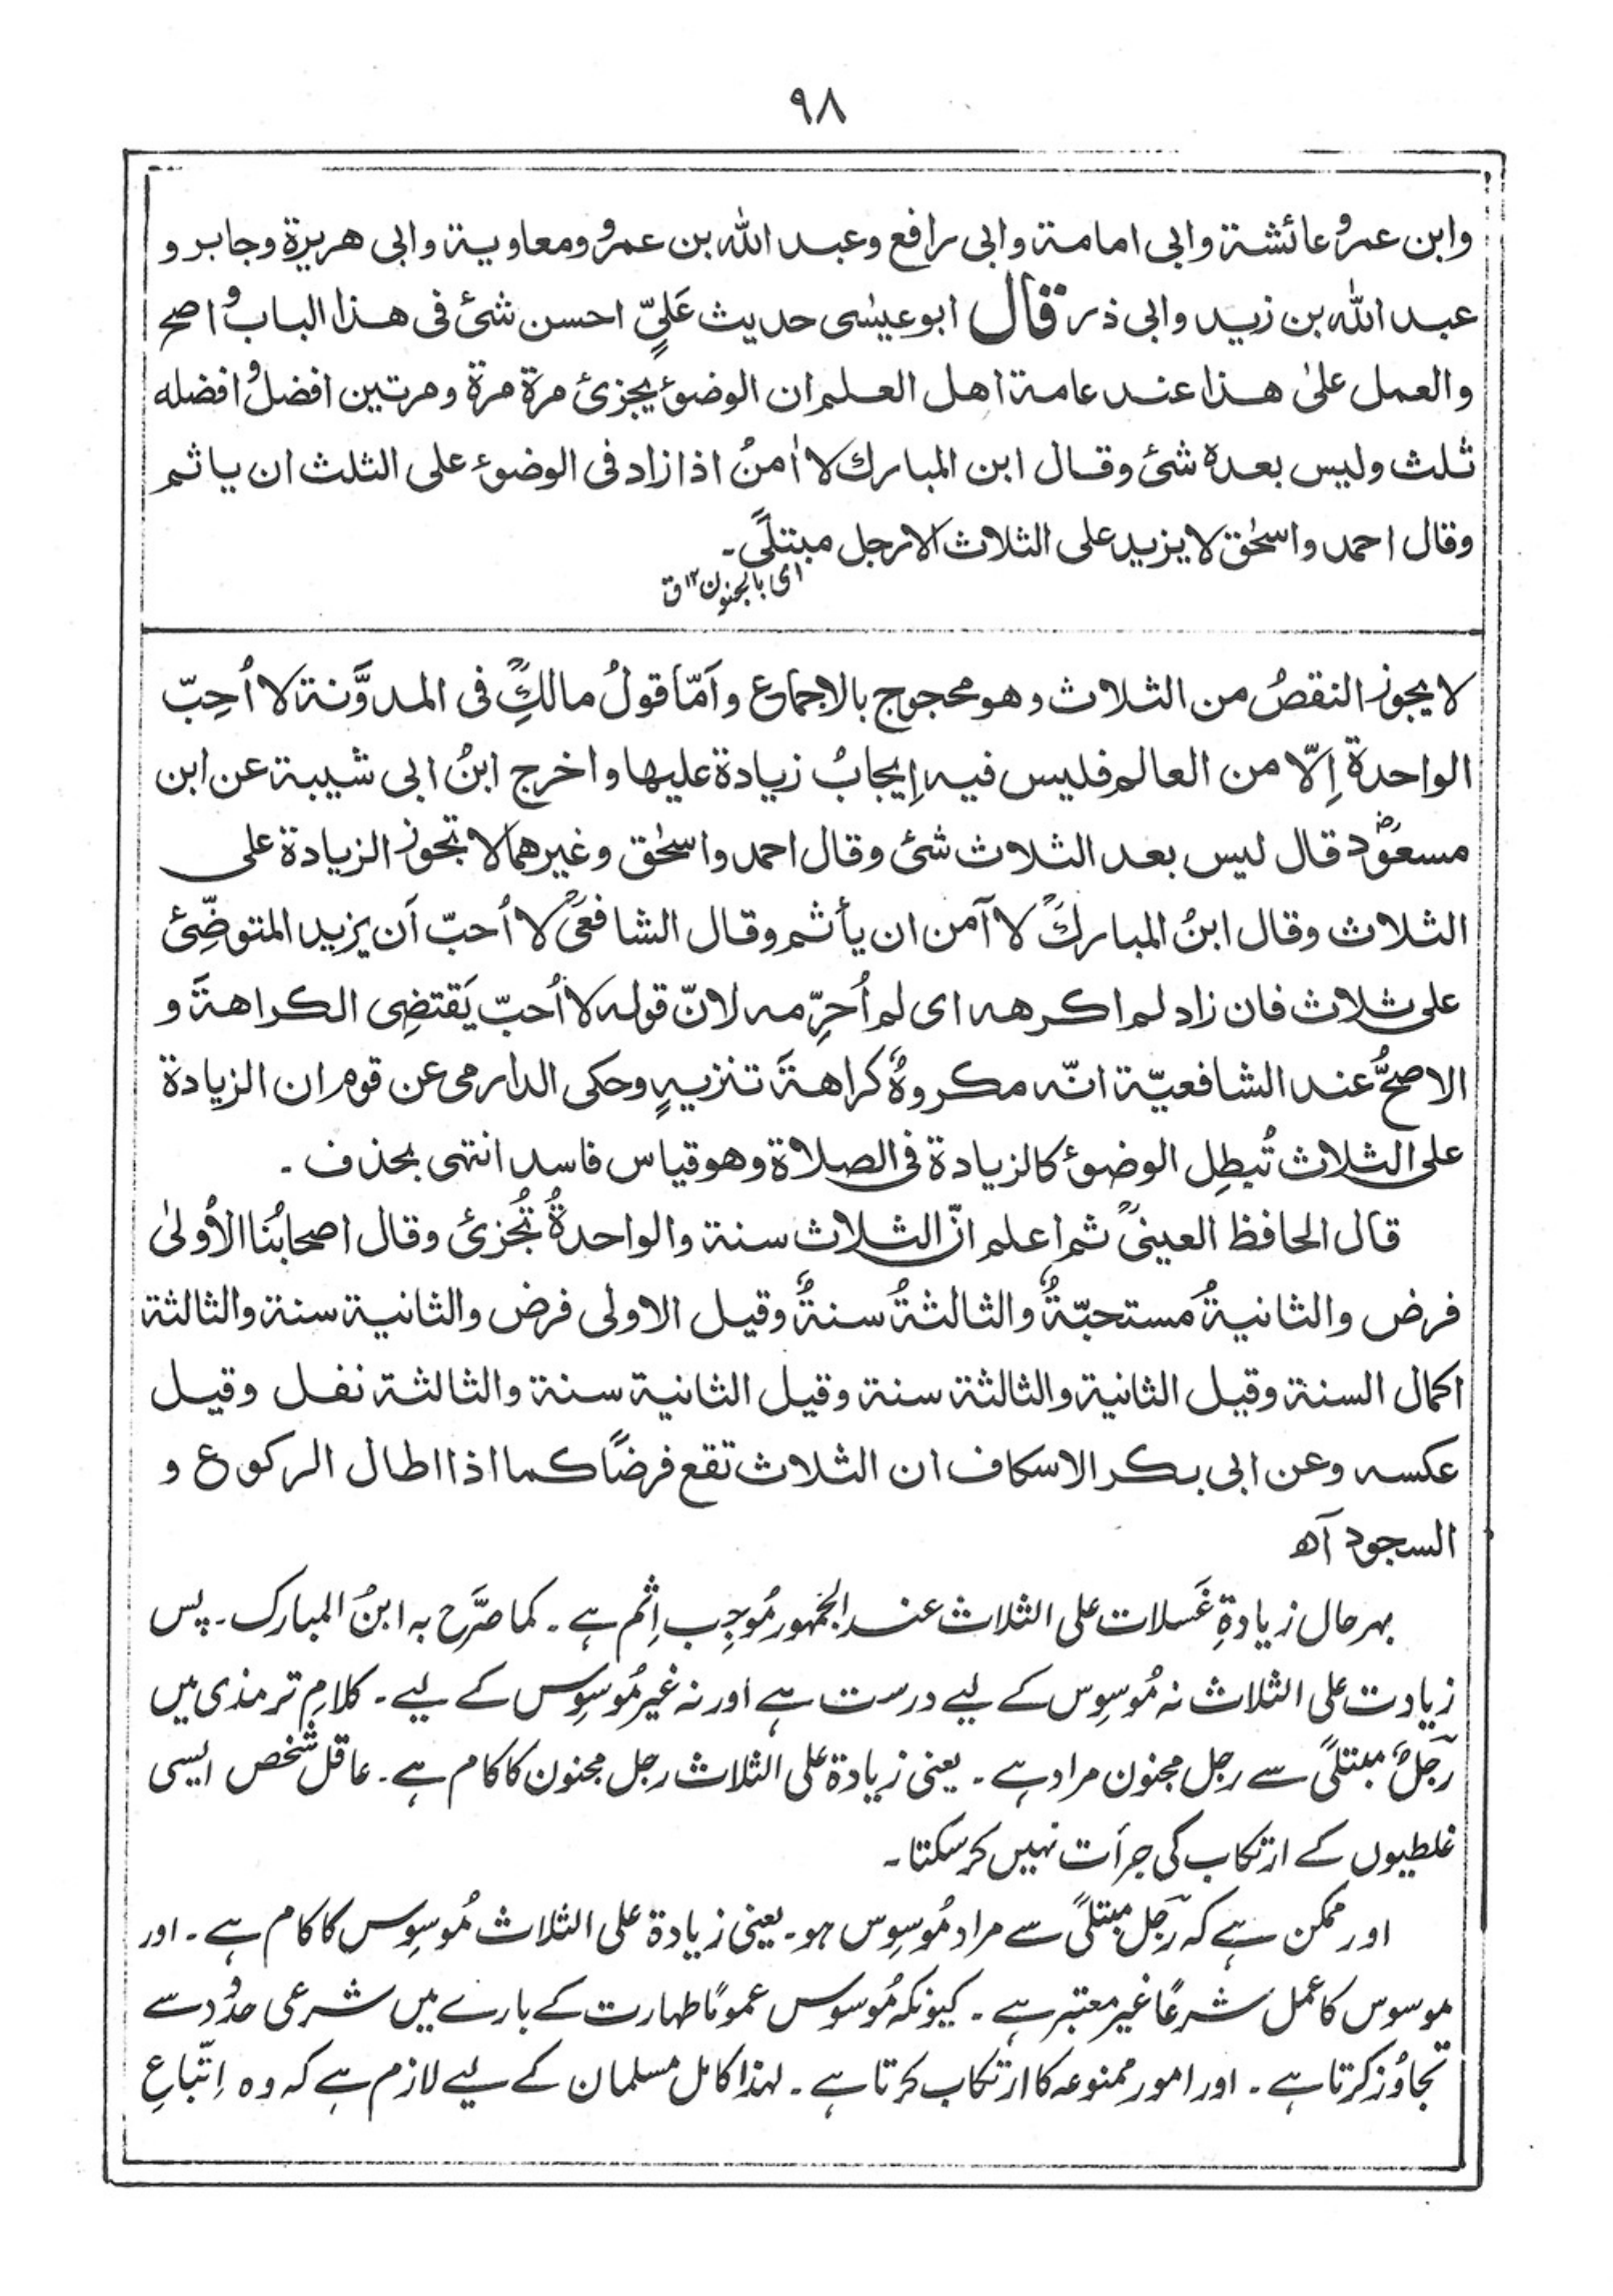 ٩٨
وابن عمرو عائشة وابی امامة وابی رافع وعبد الله بن عمرو ومعاوية وابی هريرة وجابر و
عبد الله بن زيد وابی ذر قال ابو عيسٰی حديث عَلِیٍّ احسن شئ فی هذا الباب و اصح
والعمل علیٰ هذا عند عامة اهل العلم ان الوضوءَ يجزئ مرة مرة ومرتين افضلُ و افضله
ثلث وليس بعده شئ وقال ابن المبارك لا اٰمنُ اذا زاد فی الوضوء علی الثلث ان ياثم
وقال احمد واسحٰق لا يزيد علی الثلاث الا رجل مبتلًی۔
ای بالجنون ١٢ ق
لا يجوز النقصُ من الثلاث وهو محجوج بالاجماع وأمّا قولُ مالكٍؒ فی المدوَّنة لا اُحِبّ
الواحدة إلّا من العالم فليس فيه إيجابُ زيادة عليها و اخرج ابنُ ابی شيبة عن ابن
مسعودؓ قال ليس بعد الثلاث شئ وقال احمد واسحٰق وغيرهما لا تجوز الزيادة علی
الثلاث وقال ابنُ المباركؒ لا آمن ان يأثم وقال الشافعیؒ لا اُحبّ أن يزيد المتوضِّئ
علی ثلاث فان زاد لم اكرهه ای لم أُحرِّمه لانّ قوله لا اُحبّ يَقتضِی الكراهةَ و
الاصحُّ عند الشافعيّة انّه مكروهٌ كراهةَ تنزيهٍ وحكی الدارمی عن قوم ان الزيادة
علی الثلاث تُبطِل الوضوءَ كالزيادة فی الصلاة وهو قياس فاسد انتهی بحذف۔
قال الحافظ العينیؒ ثم اعلم انّ الثلاث سنة والواحدةُ تُجزئ وقال اصحابُنا الأولیٰ
فرض والثانيةُ مستحبّةٌ والثالثةُ سنةٌ وقيل الاولی فرض والثانية سنة والثالثة
اكمال السنة وقيل الثانية والثالثة سنة وقيل الثانية سنة والثالثة نفل وقيل
عكسه وعن ابی بكر الاسكاف ان الثلاث تقع فرضًا كما اذا اطال الركوع و
السجود آه
بہر حال زیادةِ غَسلات علی الثلاث عند الجمہور مُوجِب اِثم ہے۔ کما صَرَّح بہ ابنُ المبارک۔ پس
زیادت علی الثلاث نہ مُوسوِس کے لیے درست ہے اور نہ غیر مُوسوِس کے لیے۔ کلامِ ترمذی میں
رَجلٌ مبتلًی سے رجل مجنون مراد ہے۔ یعنی زیادة علی الثلاث رجل مجنون کا کام ہے۔ عاقل شخص ایسی
غلطیوں کے ارتکاب کی جرأت نہیں کر سکتا۔
اور ممکن ہے کہ رَجل مبتلًی سے مراد مُوسوِس ہو۔ یعنی زیادة علی الثلاث مُوسوِس کا کام ہے۔ اور
موسوس کا عمل شرعًا غیر معتبر ہے۔ کیونکہ مُوسوس عمومًا طہارت کے بارے میں شرعی حدُود سے
تجاوُز کرتا ہے۔ اور امور ممنوعہ کا ارتکاب کرتا ہے۔ لہذا کامل مسلمان کے لیے لازم ہے کہ وہ اِتّباعِ